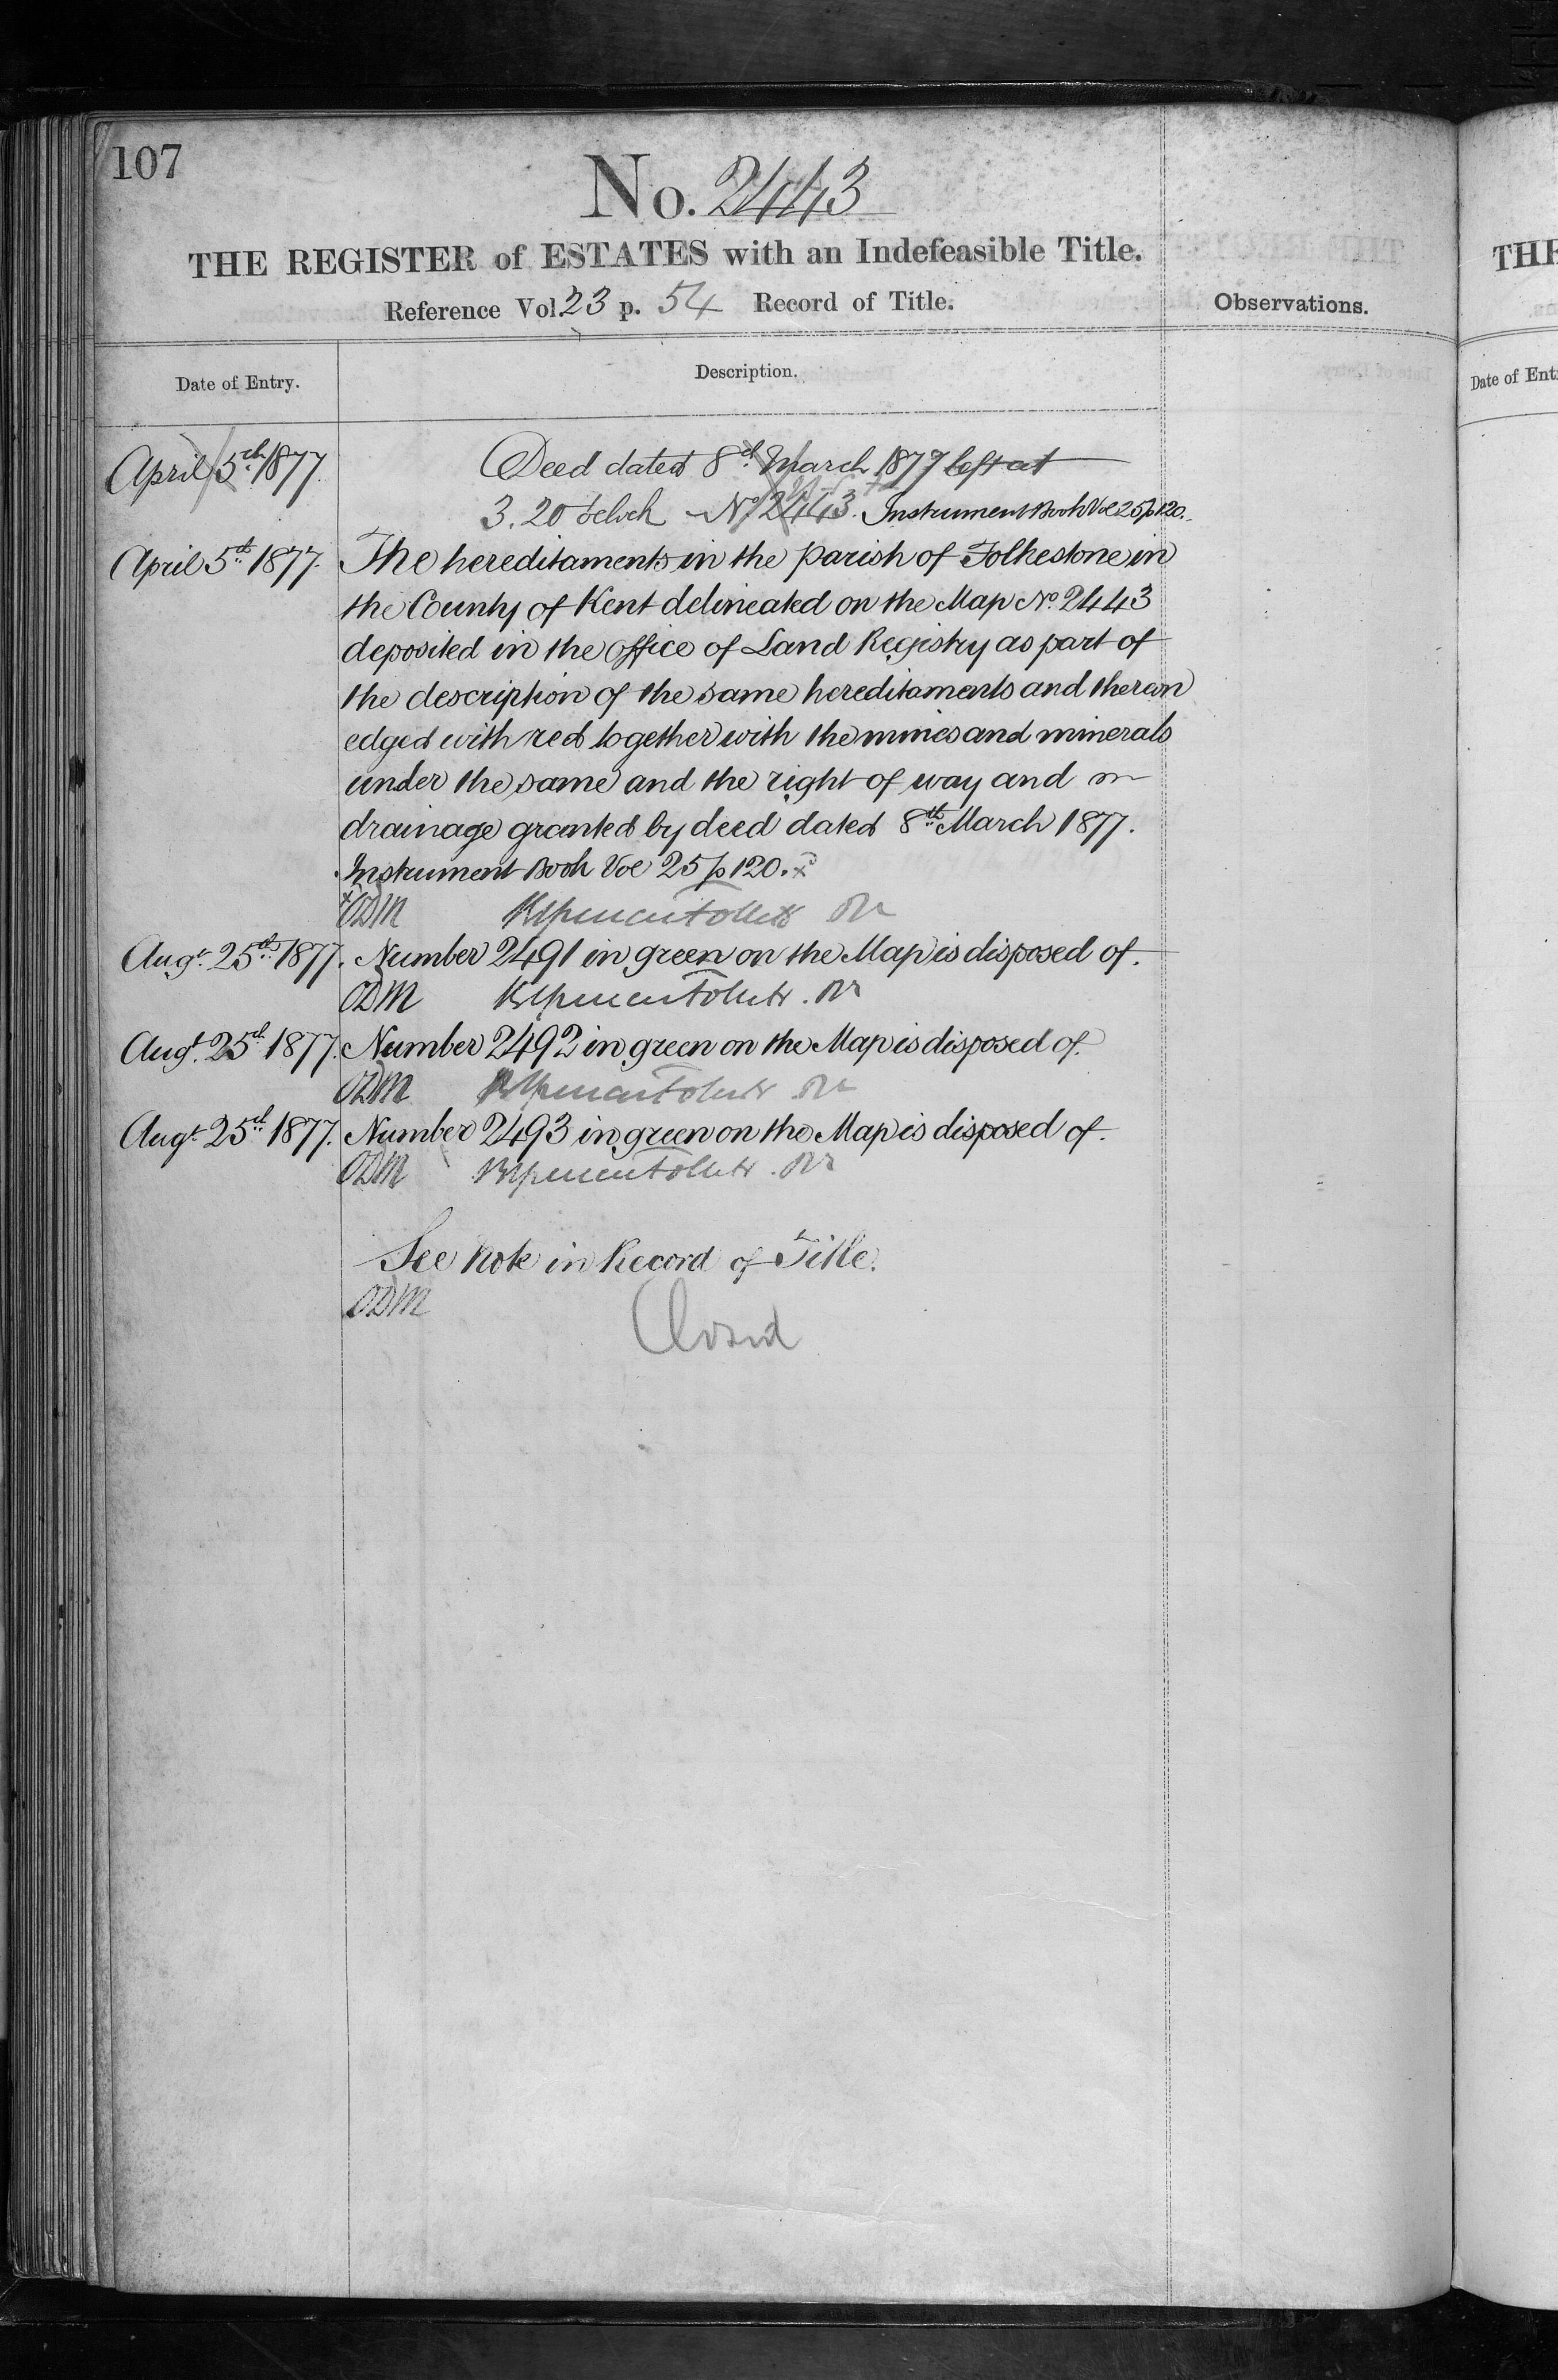 107
No. 2443
THE REGISTER of ESTATES with an Indefeasible Title.
Reference Vol 23 p. 54 Record of Title.
Observations.
Date of Entry.
Description.
April 5th 1877. Deed dated 8th March 1877 left at
3.20 o'clock No 2443. Instrument Book Vol 25 p 120.
April 5th 1877. The hereditaments in the parish of Folkestone in
the County of Kent delineated on the Map No. 2443
deposited in the Office of Land Registry as part of
the description of the same hereditaments and thereon
edged with red together with the mines and minerals
under the same and the right of way and
drainage granted by deed dated 8th March 1877.
Instrument Book Vol 25 p 120. x
x ODM
Augt. 25th 1877. Number 2491 in green on the Map is disposed of.
ODM
Augt. 25th 1877. Number 2492 in green on the Map is disposed of.
ODM
Augt. 25th 1877. Number 2493 in green on the Map is disposed of.
ODM
See Note in Record of Title.
ODM
Closed
THE
Date of Ent